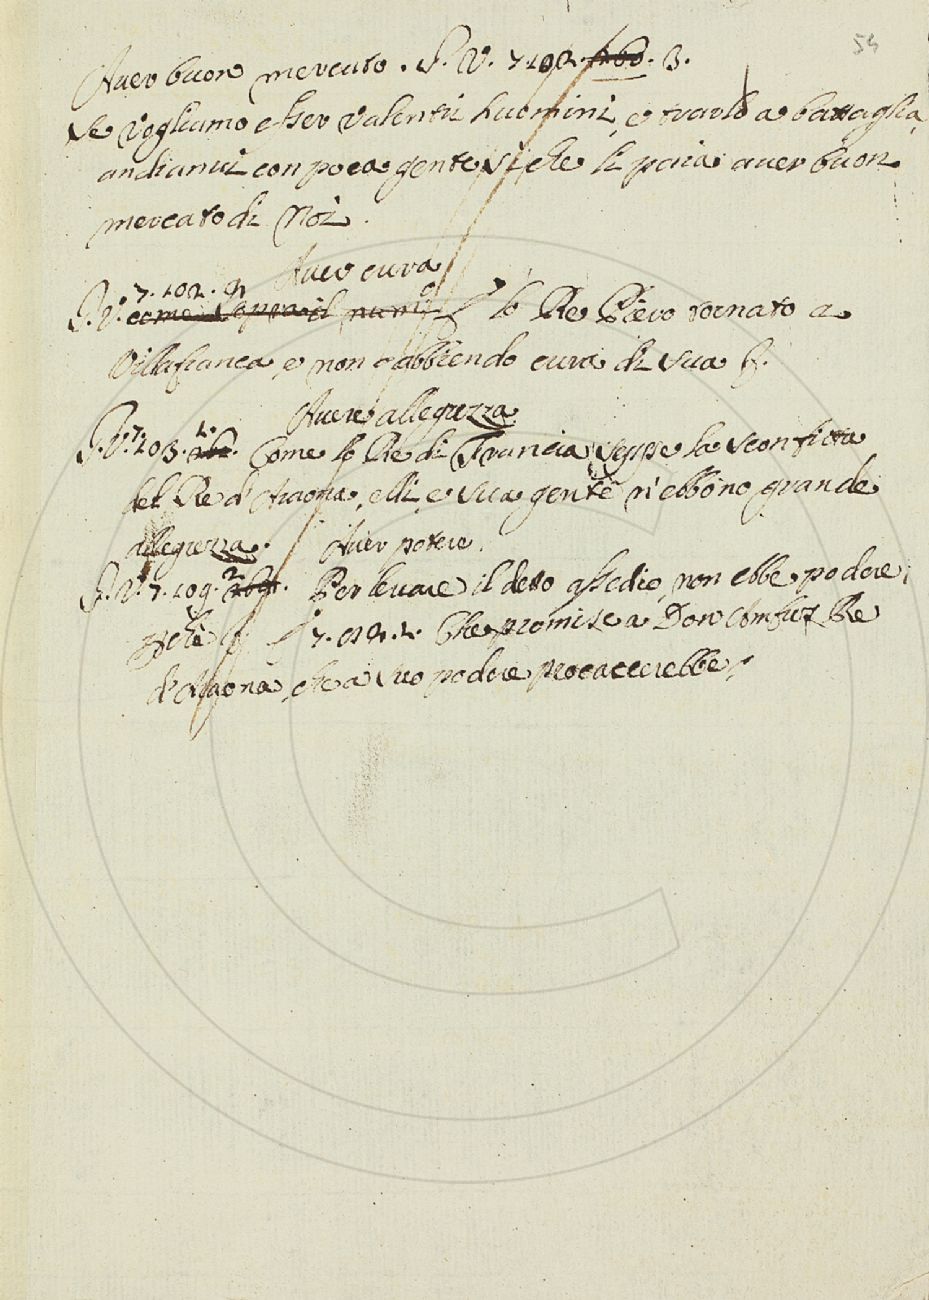 54
Aver buon mercato. G. V. 7. 102. 260. 3.
Se vogliamo esser valenti huomini, e trarlo a battaglia,
andianvi con poca gente, sì che li paia aver buon
mercato di Noi.
Aver cura
G. V. 7. 102. 4
come sopra il num.o lo Re Piero tornato a
Villafranca, e non abbiendo cura di sua
Avere allegrezza
G. V. 7. 103. 1. Come lo Re di Francia seppe la sconfitta
del Re d'Araona, elli, e sua gente n'ebbono grande
allegrezza. Aver potere.
G. V. 7. 109. 2 Per levare il detto assedio, non ebbe podere,
7. 2. Che promise a Don Amfus Re
d'Araona, che a suo podere procaccerebbe